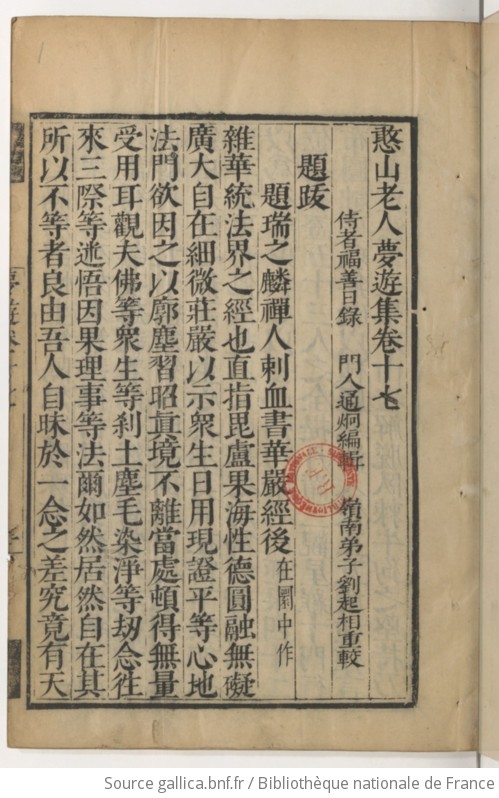 憨山老人夢遊集卷十七
侍者福善日錄 門人通炯編輯 嶺南弟子劉起相重較
題跋
題瑞之麟禪人刺血書華嚴經後在園中作
雜華統法界之經也直指毘盧果海性德圓融無礙
廣大自在細微莊嚴以示眾生日用現證平等心地
法門欲因之以廓塵習昭真境不離當處頓得無量
受用耳觀夫佛等眾生等剎土塵毛染淨等劫念徃
來三際等迷悟因果理事等法爾如然居然自在其
所以不等者良由吾人自昧於一念之差究竟有天
Source gallica.bnf.fr / Bibliothèque nationale de France